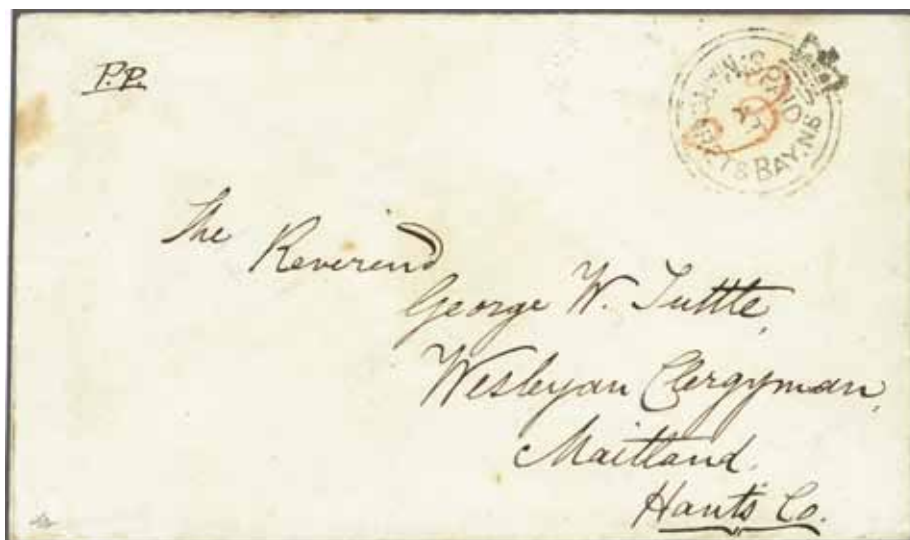 P.P.
PAID
BAY. N.B
The Reverend
George W. Tuttle,
Wesleyan Clergyman,
Maitland.
Hants Co.